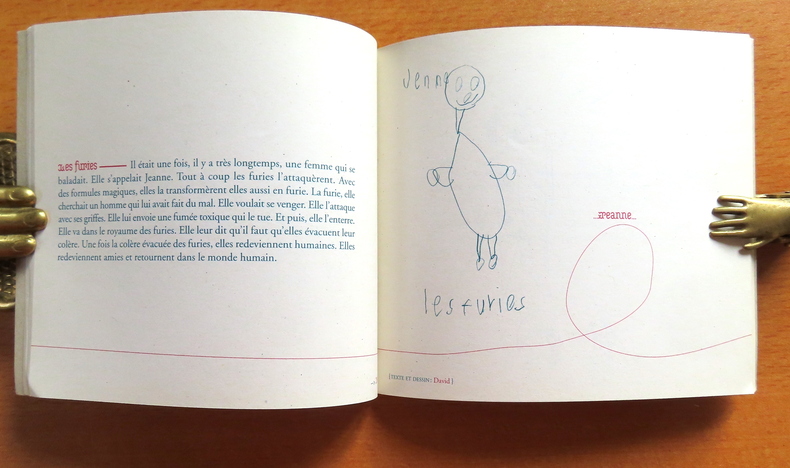 Les furies —— Il était une fois, il y a très longtemps, une femme qui se
baladait. Elle s'appelait Jeanne. Tout à coup les furies l'attaquèrent. Avec
des formules magiques, elles la transformèrent elles aussi en furie. La furie, elle
cherchait un homme qui lui avait fait du mal. Elle voulait se venger. Elle l'attaque
avec ses griffes. Elle lui envoie une fumée toxique qui le tue. Et puis, elle l'enterre.
Elle va dans le royaume des furies. Elle leur dit qu'il faut qu'elles évacuent leur
colère. Une fois la colère évacuée des furies, elles redeviennent humaines. Elles
redeviennent amies et retournent dans le monde humain.
Jenne
les furies
Jeanne
[TEXTE ET DESSIN : David]